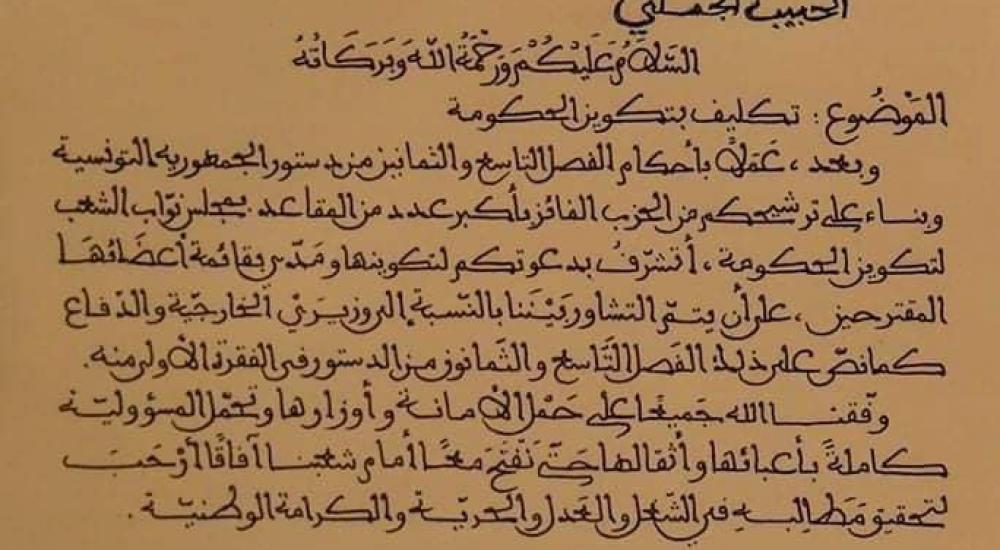 الحبيب الجملي
السَّلَامُ عَلَيْكُمْ وَرَحْمَةُ اللَّهِ وَبَرَكَاتُهُ
المَوْضُوع : تكليف بتكوين الحكومة
وبعد ، عَمَلاً بأحكام الفصل التاسع والثمانين من دستور الجمهورية التونسية
وبناء على ترشيحكم من الحزب الفائز بأكبر عدد من المقاعد بمجلس نوّاب الشعب
لتكوين الحكومة ، أتشرّفُ بدعوتكم لتكوينها ومَدّي بقائمة أعضَائهَا
المقترحين ، على أن يتمّ التشاور بَيْنَنا بالنّسبة إلى وزيرَيْ الخارجيّة والدّفاع
كما نصّ على ذلك الفَصل التَّاسع والثّمانون من الدستور في الفقرة الأولى منه.
وفّقنا الله جَميعًا على حَمْل الأمانة وأوزارها وتحمّل المسؤوليّة
كاملةً بأعبائها وأثقالها حَتَّى نَفْتَحَ معًا أمام شعبنا آفاقًا أرْحَبَ
لتحقيق مَطالبه في الشغل والعدل والحريّة والكرامة الوطنيّة .